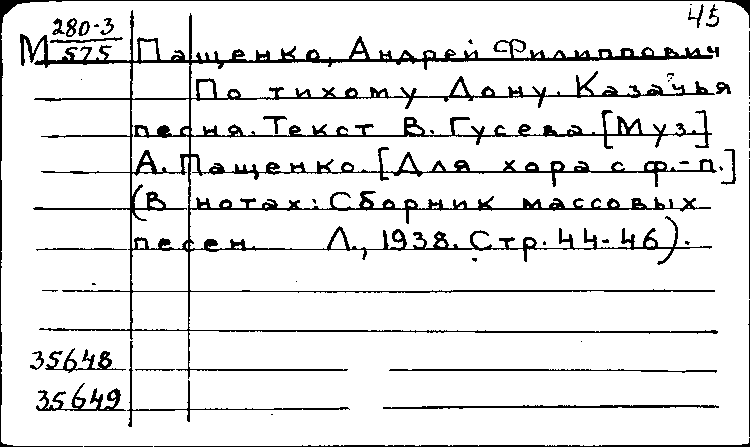 45
М 280-3
575 Пащенко, Андрей Филиппович
По тихому Дону. Казачья
песня. Текст В. Гусева. [Муз.]
А. Пащенко. [Для хора с ф.-п.]
(В нотах: Сборник массовых
песен. Л., 1938. Стр. 44-46).
35648
35649